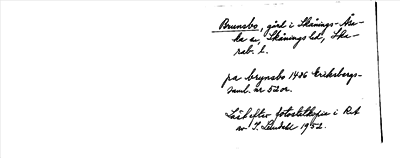 Brunsbo, gård i Skånings-Åse-
ka sn, Skånings hd, Ska-
rab. l.
pa brynsbo 1486 Eriksbergs-
saml. nr 52 or.
Läst efter fotostatkopia i RA
av I. Lundahl 1952.